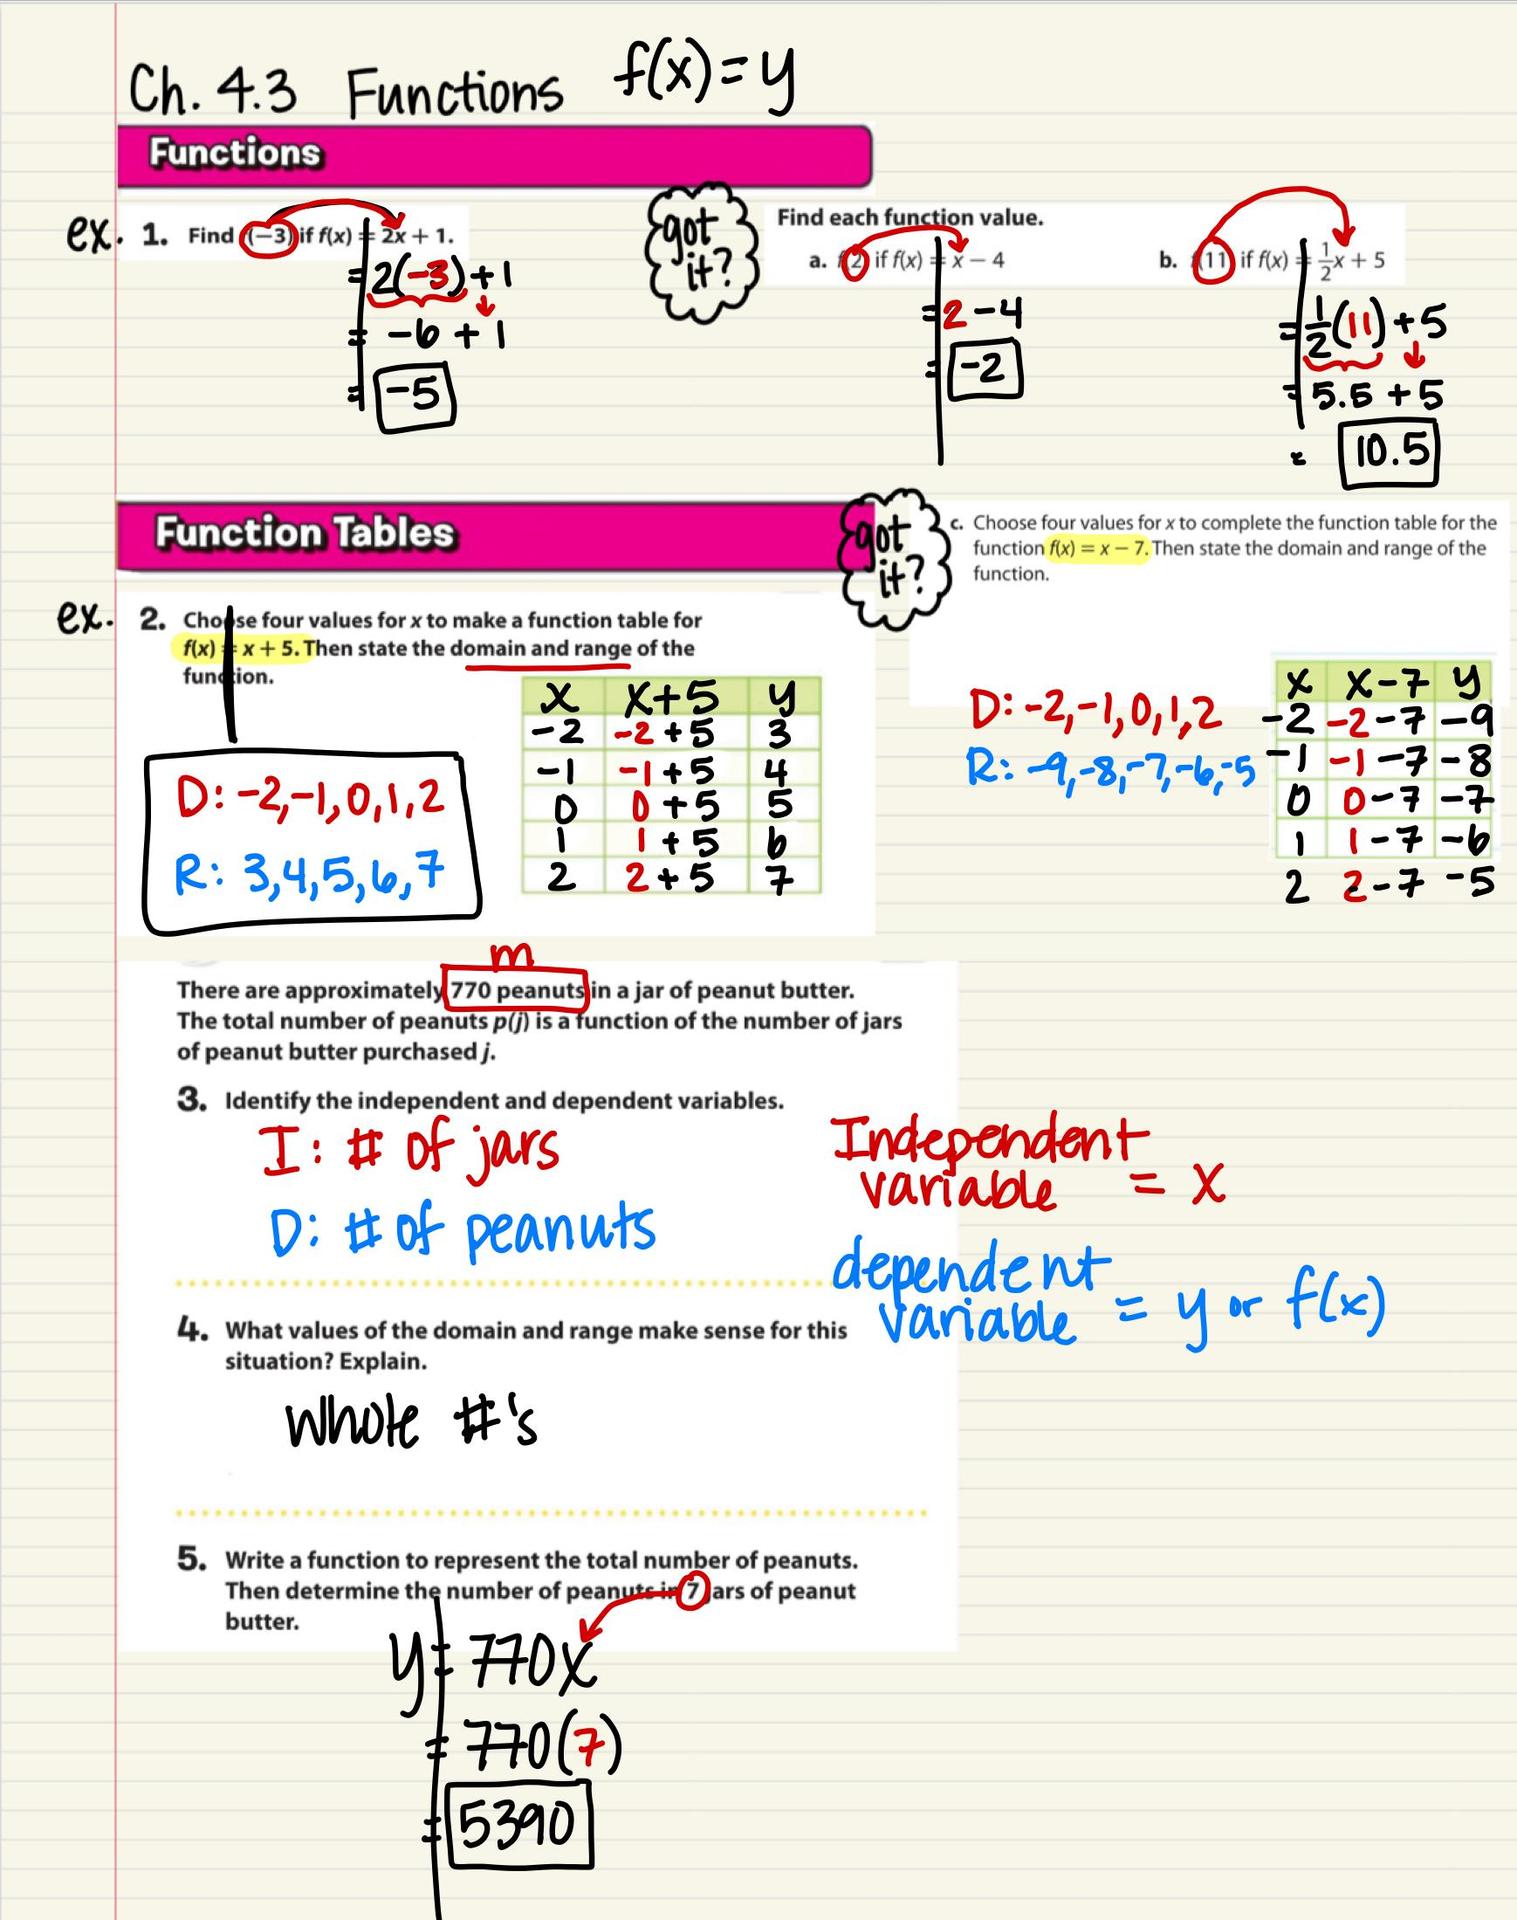 Ch. 4.3 Functions f(x) = y
Functions
ex. 1. Find f(−3) if f(x) = 2x + 1.
= 2(-3) + 1
= -6 + 1
= -5
got it?
Find each function value.
a. f(2) if f(x) = x − 4
= 2 - 4
= -2
b. f(11) if f(x) = 1/2 x + 5
= 1/2 (11) + 5
= 5.5 + 5
= 10.5
Function Tables
ex. 2. Choose four values for x to make a function table for
f(x) = x + 5. Then state the domain and range of the
function.
x x+5 y
-2 -2+5 3
-1 -1+5 4
0 0+5 5
1 1+5 6
2 2+5 7
D: -2,-1,0,1,2
R: 3,4,5,6,7
got it?
c. Choose four values for x to complete the function table for the
function f(x) = x − 7. Then state the domain and range of the
function.
D: -2,-1,0,1,2
R: -9,-8,-7,-6,-5
x x-7 y
-2 -2-7 -9
-1 -1-7 -8
0 0-7 -7
1 1-7 -6
2 2-7 -5
m
There are approximately 770 peanuts in a jar of peanut butter.
The total number of peanuts p(j) is a function of the number of jars
of peanut butter purchased j.
3. Identify the independent and dependent variables.
I: # of jars
D: # of peanuts
Independent
variable = x
dependent
variable = y or f(x)
4. What values of the domain and range make sense for this
situation? Explain.
Whole #'s
5. Write a function to represent the total number of peanuts.
Then determine the number of peanuts in 7 jars of peanut
butter.
y = 770x
= 770(7)
= 5390